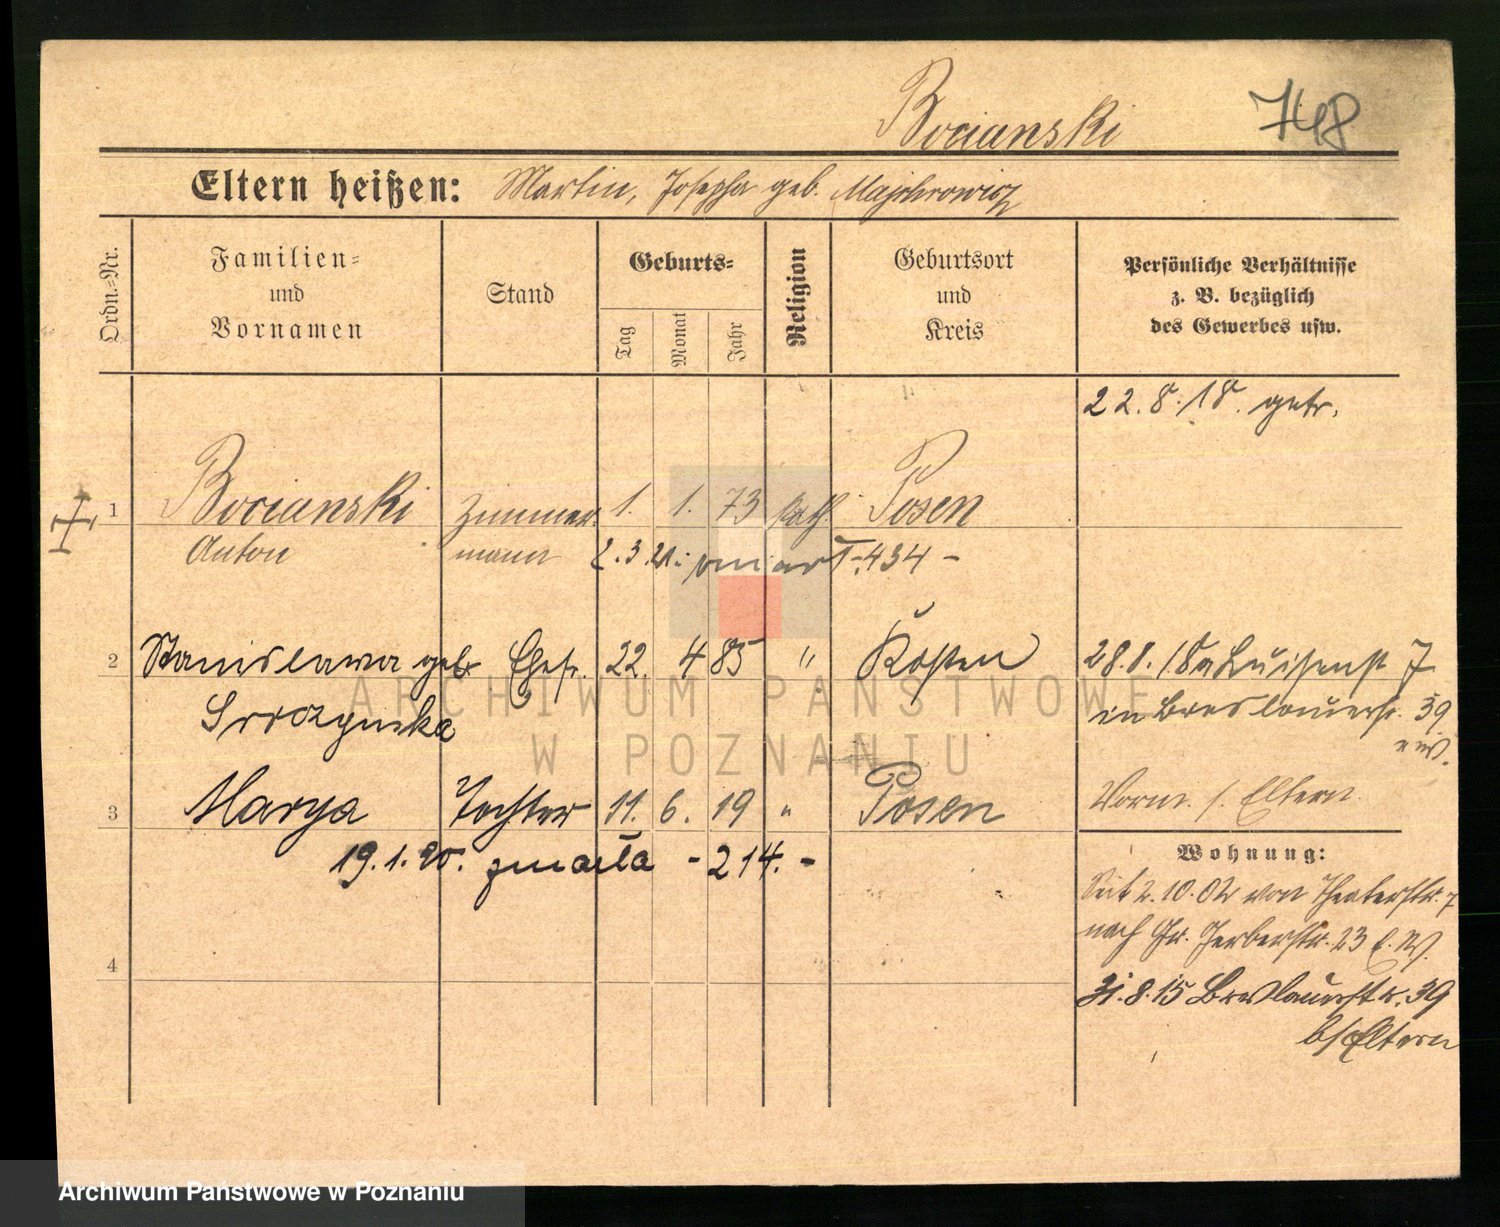 Bocianski 748
Eltern heißen: Martin, Josepha geb. Majchrowicz
Ordn.=Nr.
Familien=
und
Vornamen
Stand
Geburts=
Tag
Monat
Jahr
Religion
Geburtsort
und
Kreis
Persönliche Verhältnisse
z. B. bezüglich
des Gewerbes usw.
22.8.18. getr.
1 Bocianski Zimmer 1. 1. 73 kath. Posen
Anton mann 2.3.21. umarł - 434 -
2 Stanislawa geb. Ehefr. 22. 4 85 " Kosten 28.8.18 Luisenst 7
in Breslauerstr. 39
3 Marya Tochter 11. 6. 19 " Posen Vorm. s. Eltern.
19.1.20. zmarła - 214. -
Wohnung:
Seit 2.10.02 von Theaterstr. 7
nach Gr. Gerberstr. 23 E. W.
4
31.8.15 Breslauerstr. 39
b/Eltern
ARCHIWUM PAŃSTWOWE
W POZNANIU
Archiwum Państwowe w Poznaniu